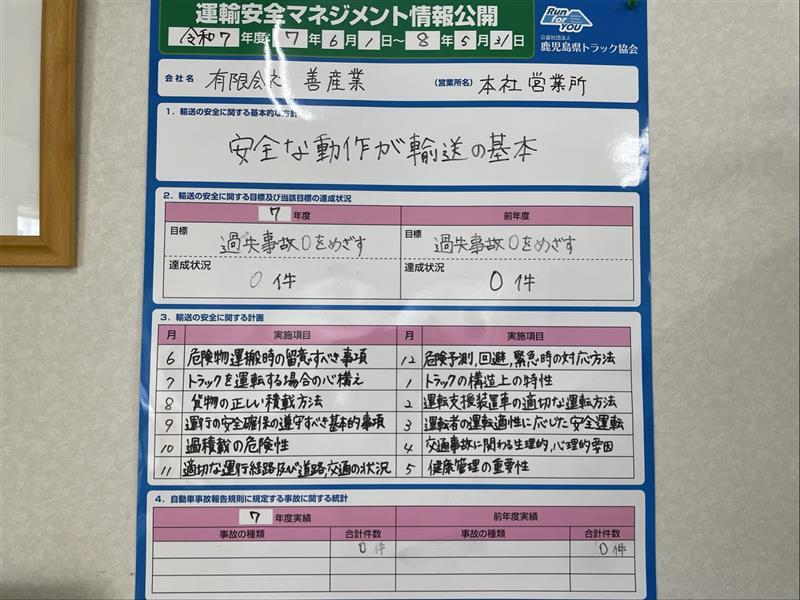 運輸安全マネジメント情報公開
令和7年度:7年6月1日~8年5月31日
Run for YOU
公益社団法人
鹿児島県トラック協会
会社名 有限会社 善産業 (営業所名) 本社営業所
1. 輸送の安全に関する基本的な方針
安全な動作が輸送の基本
2. 輸送の安全に関する目標及び当該目標の達成状況
7年度 前年度
目標 目標
過失事故0をめざす 過失事故0をめざす
達成状況 達成状況
0件 0件
3. 輸送の安全に関する計画
月 実施項目 月 実施項目
6 危険物運搬時の留意すべき事項 12 危険予測,回避,緊急時の対応方法
7 トラックを運転する場合の心構え 1 トラックの構造上の特性
8 貨物の正しい積載方法 2 運転支援装置車の適切な運転方法
9 運行の安全確保の遵守すべき基本的事項 3 運転者の運転適性に応じた安全運転
10 過積載の危険性 4 交通事故に関わる生理的,心理的要因
11 適切な運行経路及び道路,交通の状況 5 健康管理の重要性
4. 自動車事故報告規則に規定する事故に関する統計
7年度実績 前年度実績
事故の種類 合計件数 事故の種類 合計件数
0件 0件